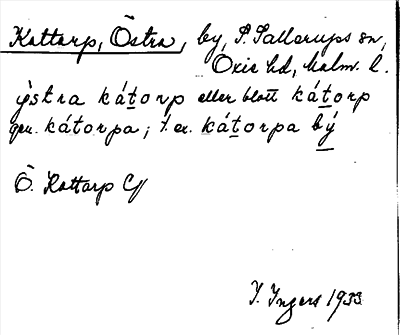 Kattarp, Östra, by, S. Sallerups sn,
Oxie hd, Malm. l.
ýstra kátorp eller blott kátorp
gen. kátorpa; t. ex. kátorpa bý
Ö. Kattarp
I. Ingers 1933